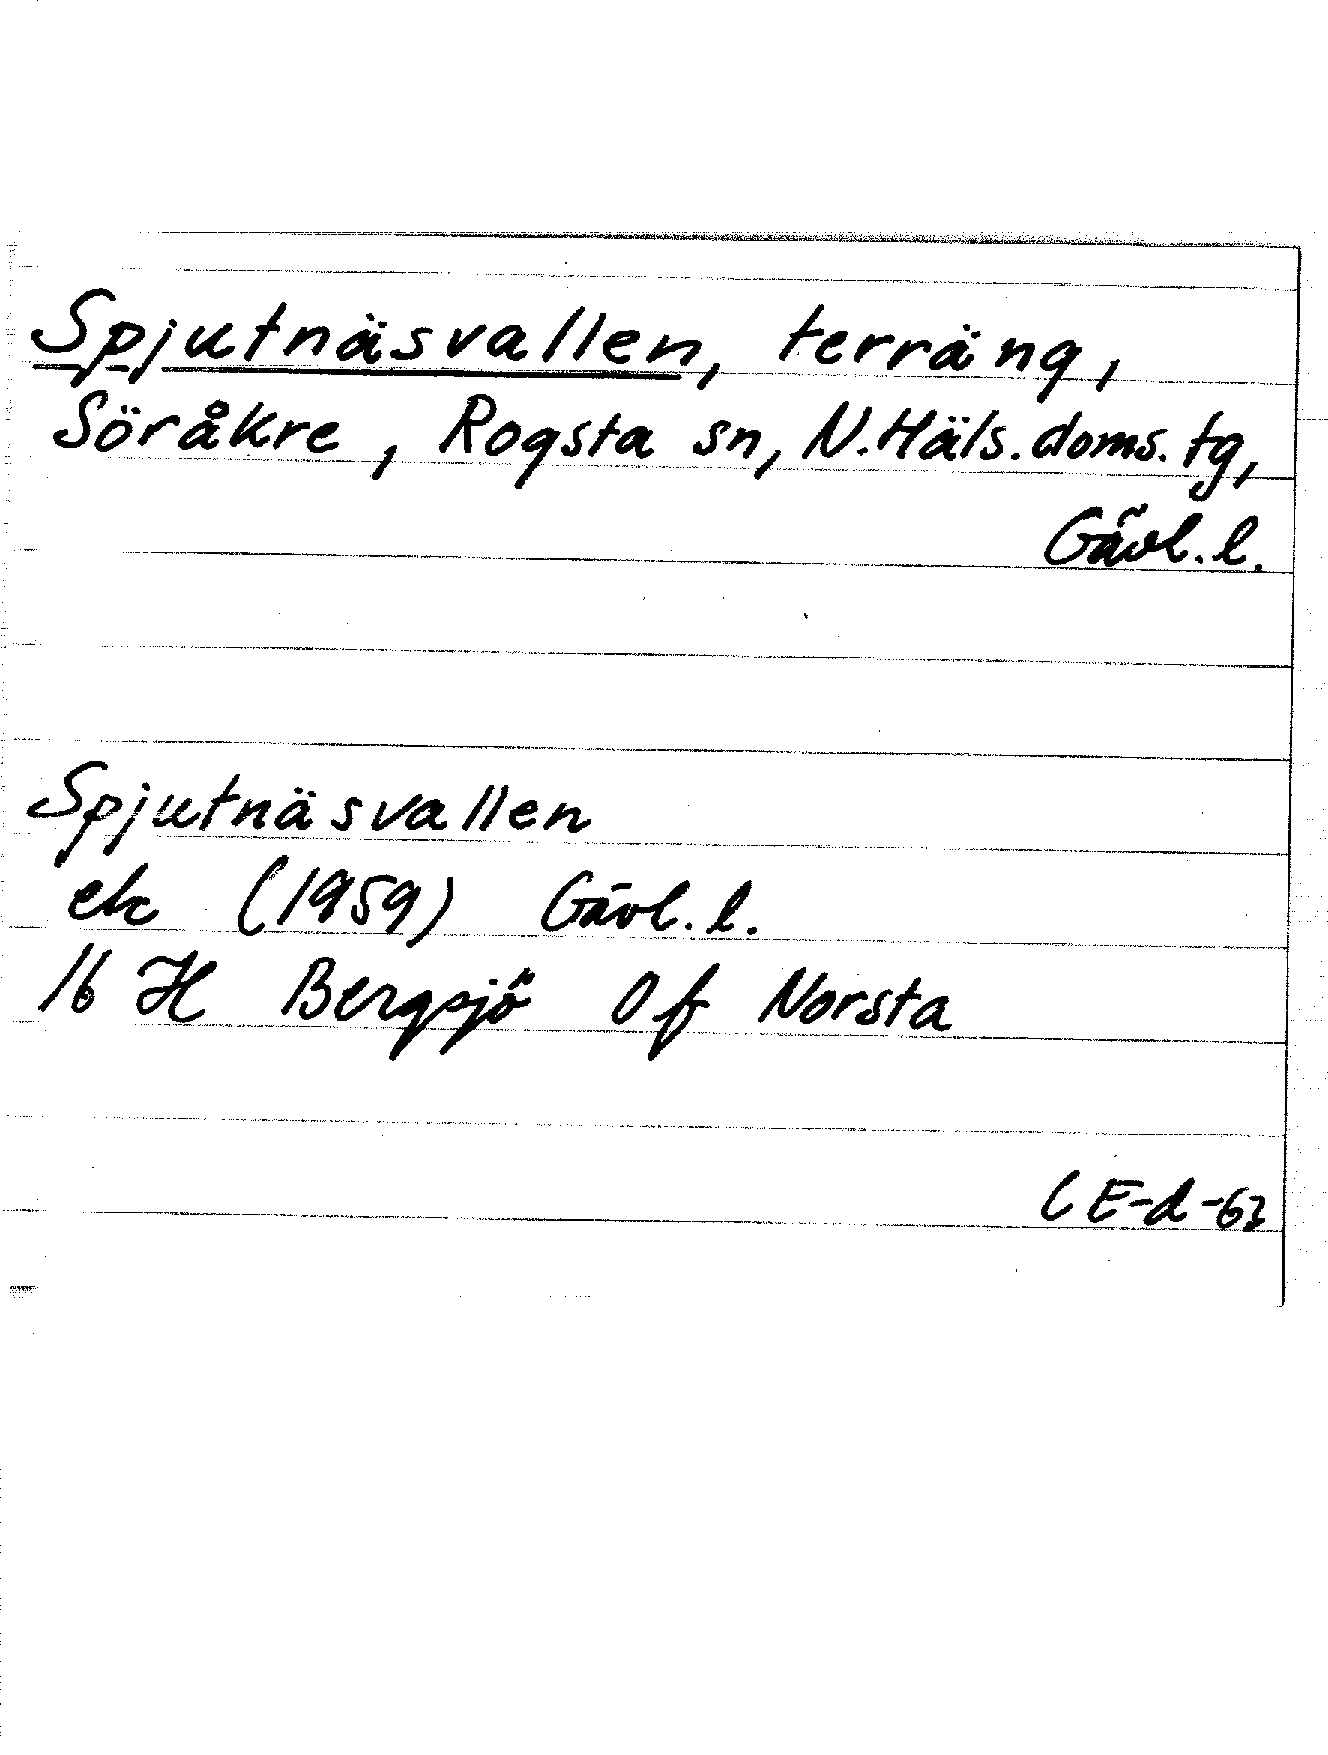 Spjutnäsvallen, terräng,
Söråkre, Rogsta sn, N.Häls.doms.tg,
Gävl.l.
Spjutnäsvallen
ek (1959) Gävl.l.
16 H Bergsjö 0f Norsta
CE-d-63